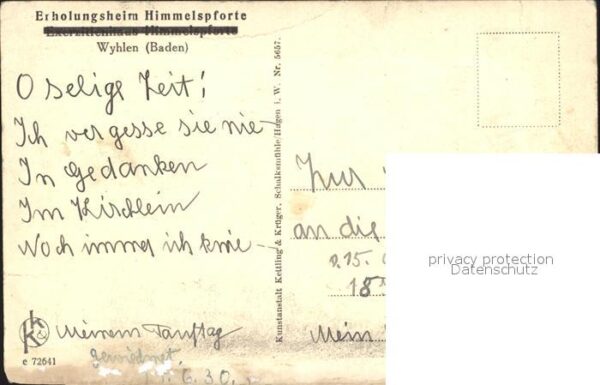 Erholungsheim Himmelspforte
Exerzitienhaus Himmelspforte
Wyhlen (Baden)
O selige Zeit!
Ich vergesse sie nie
In Gedanken
Im Kirchlein
Noch immer ich knie
Meinem Tauftag
gewidmet.
6.30.
K&K
c 72641
Kunstanstalt Kettling & Krüger, Schalksmühle/Hagen i. W. Nr. 5657.
Zur
an die
15.
18
Mein
privacy protection
Datenschutz